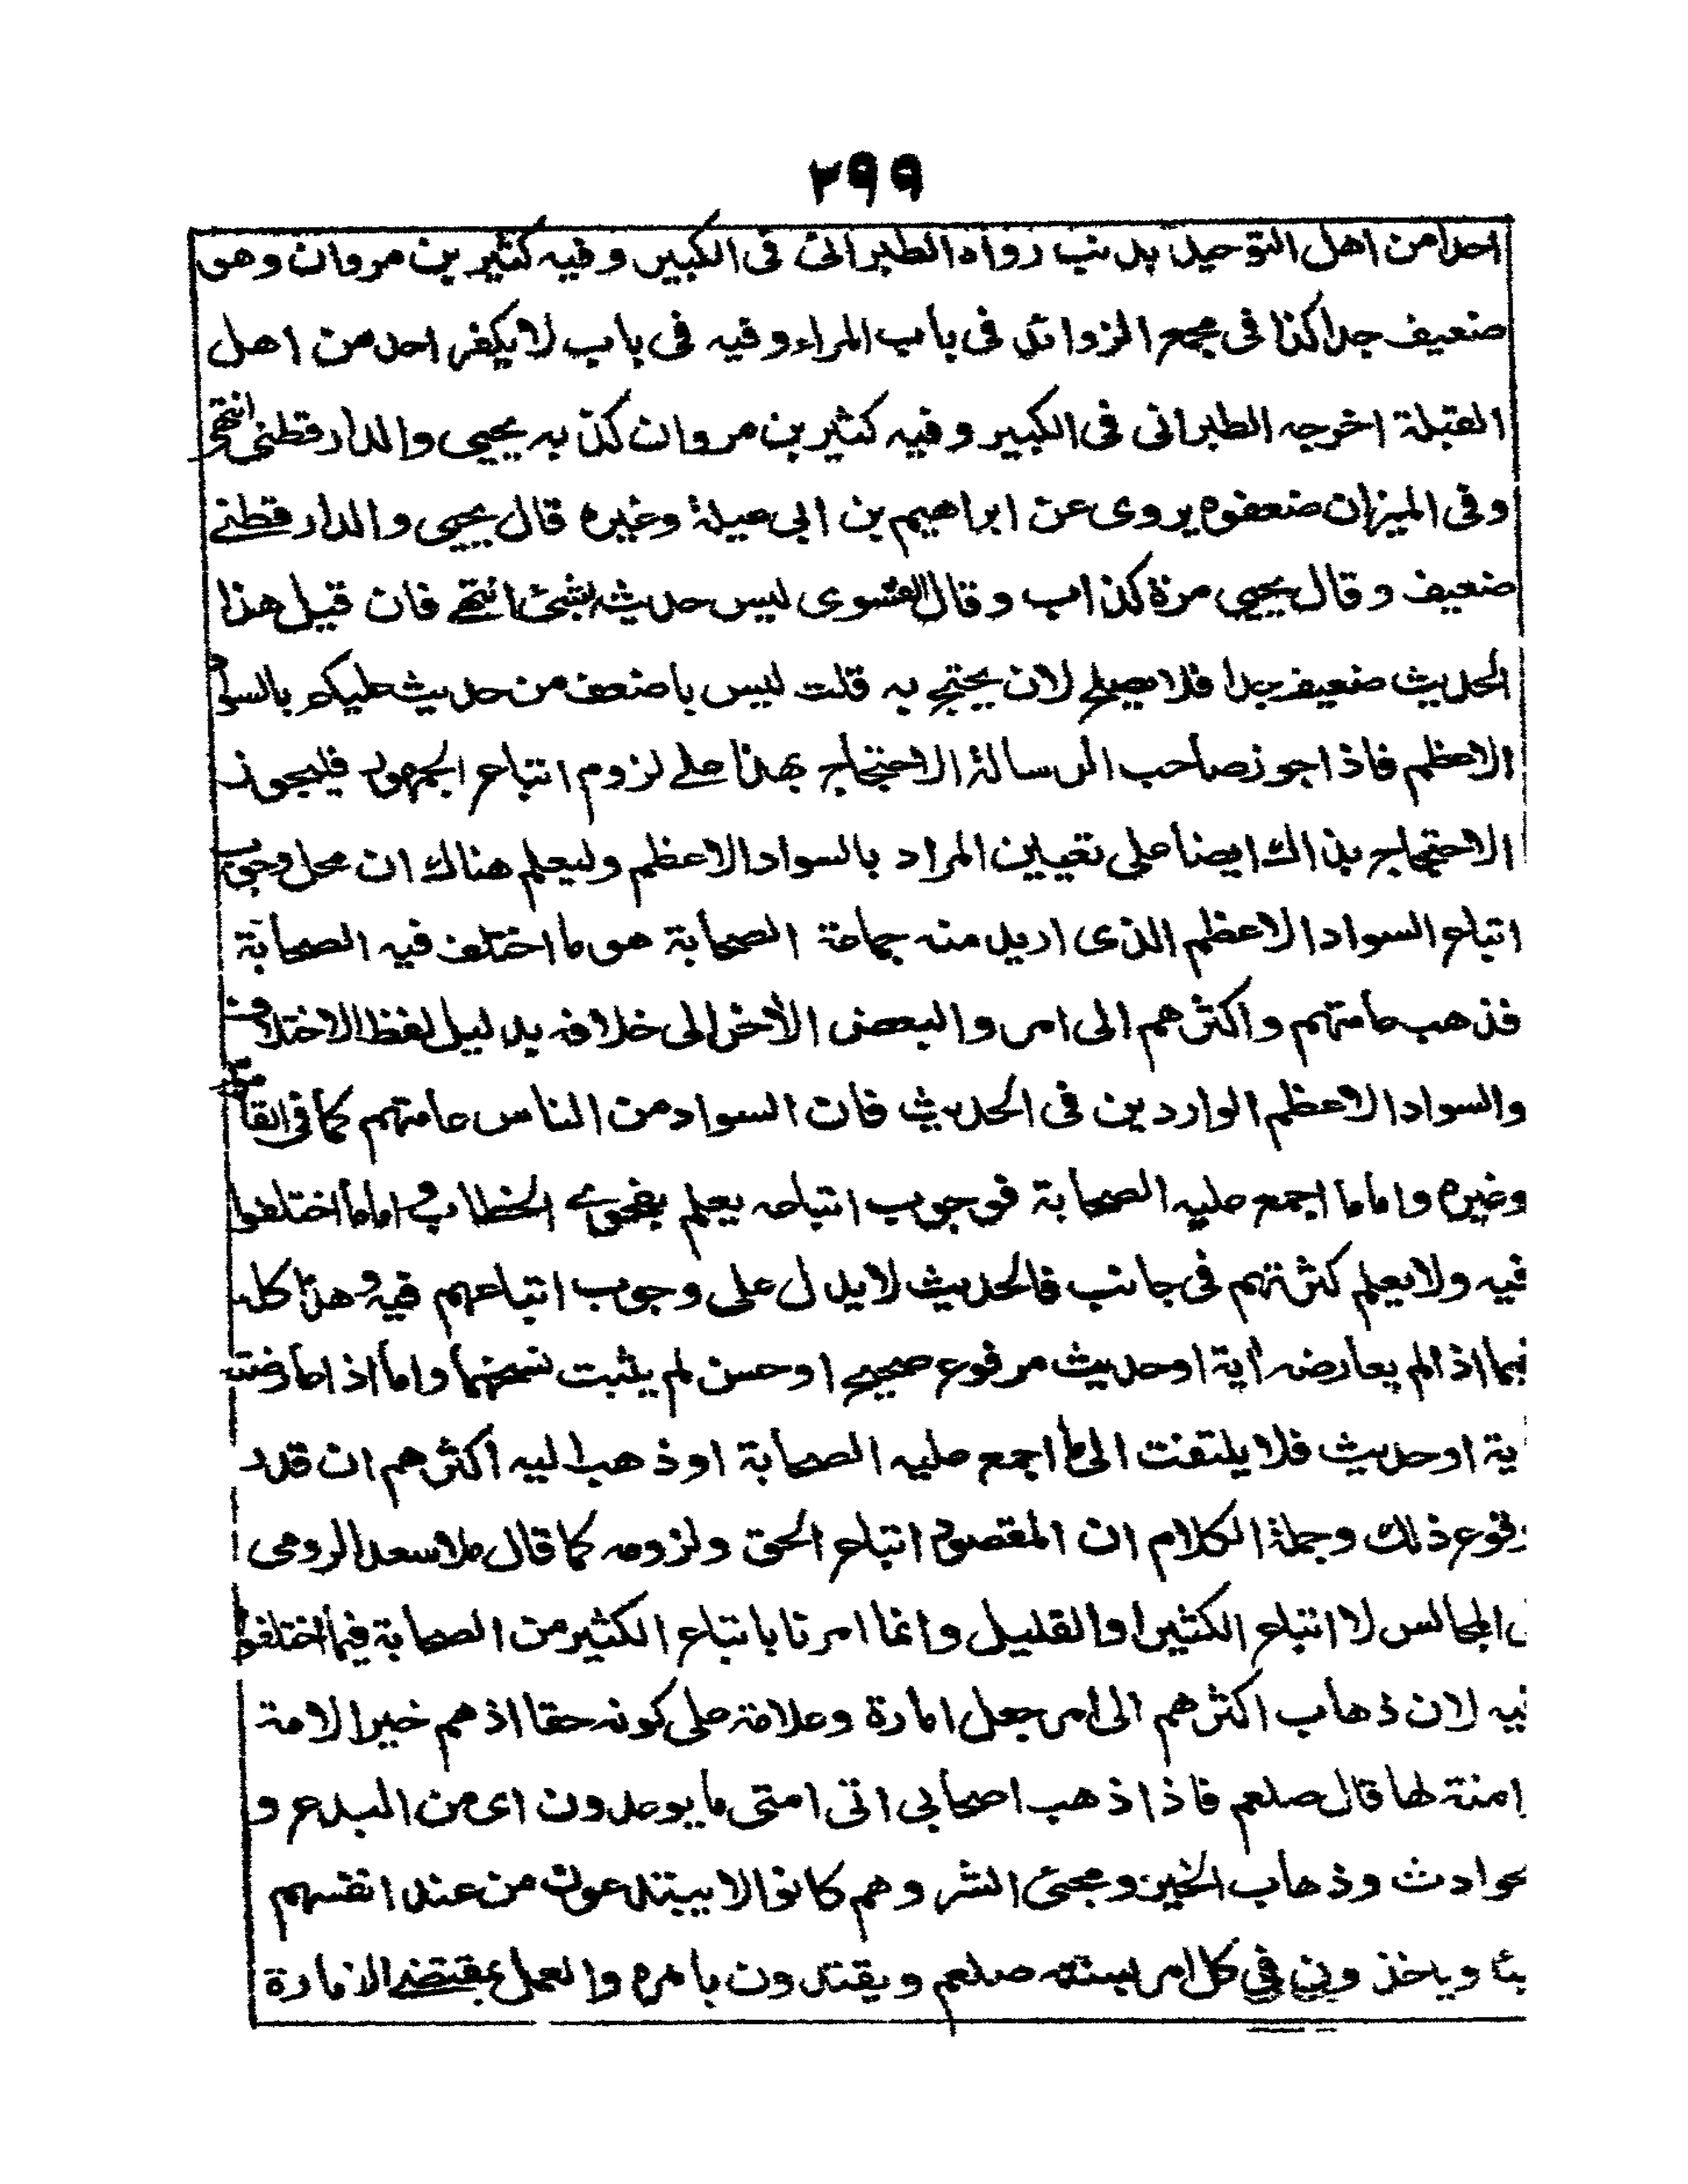 ٢٩٩
احدا من اهل التوحيد بذنب رواه الطبرانى فى الكبير وفيه كثير بن مروان وهو
ضعيف جدا كذا فى مجمع الزوائد فى باب المراء وفيه فى باب لا يكفر احد من اهل
القبلة اخرجه الطبرانى فى الكبير وفيه كثير بن مروان كذبه يحيى والدارقطنى انتهى
وفى الميزان ضعفوه يروى عن ابراهيم بن ابى عبلة وغيره قال يحيى والدارقطنے
ضعيف وقال يحيى مرة كذاب وقال الفسوى ليس حديثه بشئ انتهے فان قيل هذا
الحديث ضعيف جدا فلا يصلح لان يحتج به قلت ليس باضعف من حديث عليكم بالسواد
الاعظم فاذا جوز صاحب الرسالة الاحتجاج بهذا علے لزوم اتباع الجمهور فليجوز
الاحتجاج بذاك ايضا على تعيين المراد بالسواد الاعظم وليعلم هناك ان محل وجوب
اتباع السواد الاعظم الذى اريد منه جماعة الصحابة هو ما اختلف فيه الصحابة
فذهب عامتهم واكثرهم الى امر والبعض الأخر الى خلافه بدليل لفظ الاختلاف
والسواد الاعظم الواردين فى الحديث فان السواد من الناس عامتهم كما فى القاموس
وغيره واما ما اجمع عليه الصحابة فوجوب اتباعه يعلم بفحوے الخطاب واما ما اختلفوا
فيه ولا يعلم كثرتهم فى جانب فالحديث لا يدل على وجوب اتباعهم فيه وهذا كله
فيما اذا لم يعارضه أية او حديث مرفوع صحيح او حسن لم يثبت نسخهما واما اذا عارضته
ية او حديث فلا يلتفت الى ما اجمع عليه الصحابة او ذهب اليه اكثرهم ان قدر
وقوع ذلك وجملة الكلام ان المقصود اتباع الحق ولزومه كما قال ملا سعد الرومى
المجالس لا اتباع الكثير او القليل وانما امرنا باتباع الكثير من الصحابة فيما اختلفوا
فيه لان ذهاب اكثرهم الى امر جعل امارة وعلامة على كونه حقا اذ هم خير الامة
امنة لها قال صلعم فاذا ذهب اصحابى اتى امتى ما يوعدون اى من البدع و
حوادث وذهاب الخير ومجئ الشر وهم كانوا لا يبتدعون من عند انفسهم
ئا وياخذون فى كل امر بسنته صلعم ويقتدون بامره والعمل بمقتضے الامارة